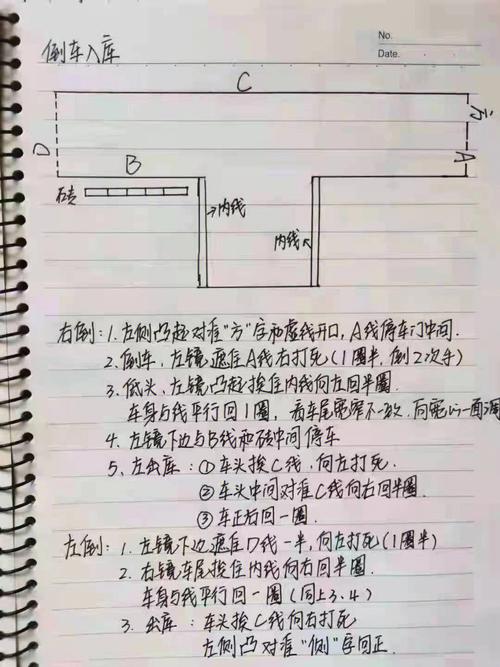 No.
Date.
倒车入库
C
方
D
A
B
砖
内线
内线
右倒：1. 左侧凸起对准“方”字和虚线开口，A线停车门中间.
2. 倒车，左镜遮住A线右打死(1圈半，倒2次手)
3. 低头，左镜凸起挨住内线向左回半圈.
车身与线平行回1圈，看车尾宽窄不一致，向宽的一面调
4. 左镜下边与B线和砖中间停车
5. 左出库：①车头挨C线，向左打死.
②车头中间对准C线向右回半圈.
③车正后回一圈.
左倒：1. 左镜下边遮住D线一半，向左打死(1圈半)
2. 右镜车尾挨住内线向右回半圈.
车身与线平行回一圈(同上3.4)
3. 出库：车头挨C线向右打死
左侧凸对准“侧”字回正.